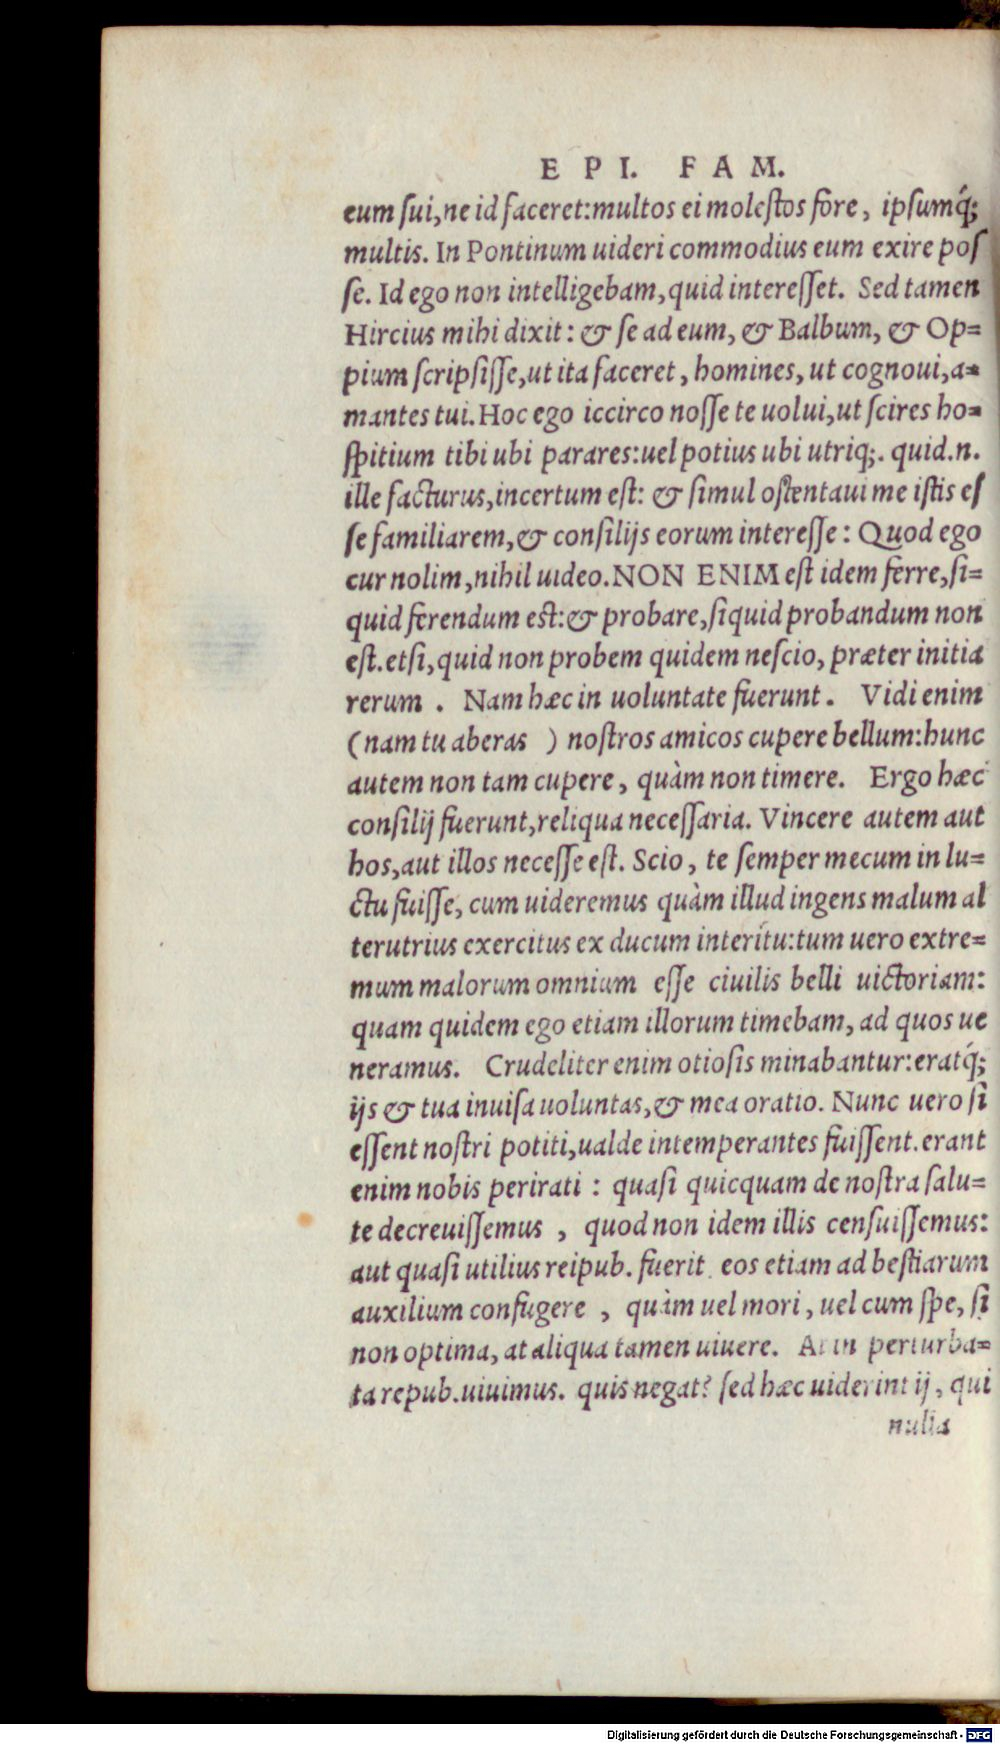 EPI. FAM.
eum ſui, ne id faceret: multos ei moleſtos fore, ipſumq́;
multis. In Pontinum uideri commodius eum exire poſ
ſe. Id ego non intelligebam, quid intereſſet. Sed tamen
Hircius mihi dixit: & ſe ad eum, & Balbum, & Op=
pium ſcripſiſſe, ut ita faceret, homines, ut cognoui, a=
mantes tui. Hoc ego iccirco noſſe te uolui, ut ſcires ho=
ſpitium tibi ubi parares: uel potius ubi utriq;. quid.n.
ille facturus, incertum eſt: & ſimul oſtentaui me iſtis eſ
ſe familiarem, & conſilijs eorum intereſſe: Quod ego
cur nolim, nihil uideo. NON ENIM eſt idem ferre, ſi=
quid ferendum est: & probare, ſiquid probandum non
eſt. etſi, quid non probem quidem neſcio, præter initia
rerum . Nam hæc in uoluntate fuerunt. Vidi enim
(nam tu aberas ) noſtros amicos cupere bellum: hunc
autem non tam cupere, quàm non timere. Ergo hæc
conſilij fuerunt, reliqua neceſſaria. Vincere autem aut
hos, aut illos neceſſe eſt. Scio, te ſemper mecum in lu=
ctu fuiſſe, cum uideremus quàm illud ingens malum al
terutrius exercitus ex ducum interitu: tum uero extre=
mum malorum omnium eſſe ciuilis belli uictoriam:
quam quidem ego etiam illorum timebam, ad quos ue
neramus. Crudeliter enim otioſis minabantur: eratq́;
ijs & tua inuiſa uoluntas, & mea oratio. Nunc uero ſi
eſſent noſtri potiti, ualde intemperantes fuiſſent. erant
enim nobis perirati : quaſi quicquam de noſtra ſalu=
te decreuiſſemus , quod non idem illis cenſuiſſemus:
aut quaſi utilius reipub. fuerit eos etiam ad beſtiarum
auxilium confugere , quàm uel mori, uel cum ſpe, ſi
non optima, at aliqua tamen uiuere. At in perturba=
ta repub. uiuimus. quis negat? ſed hæc uiderint ij, qui
nulla
Digitalisierung gefördert durch die Deutsche Forschungsgemeinschaft - DFG